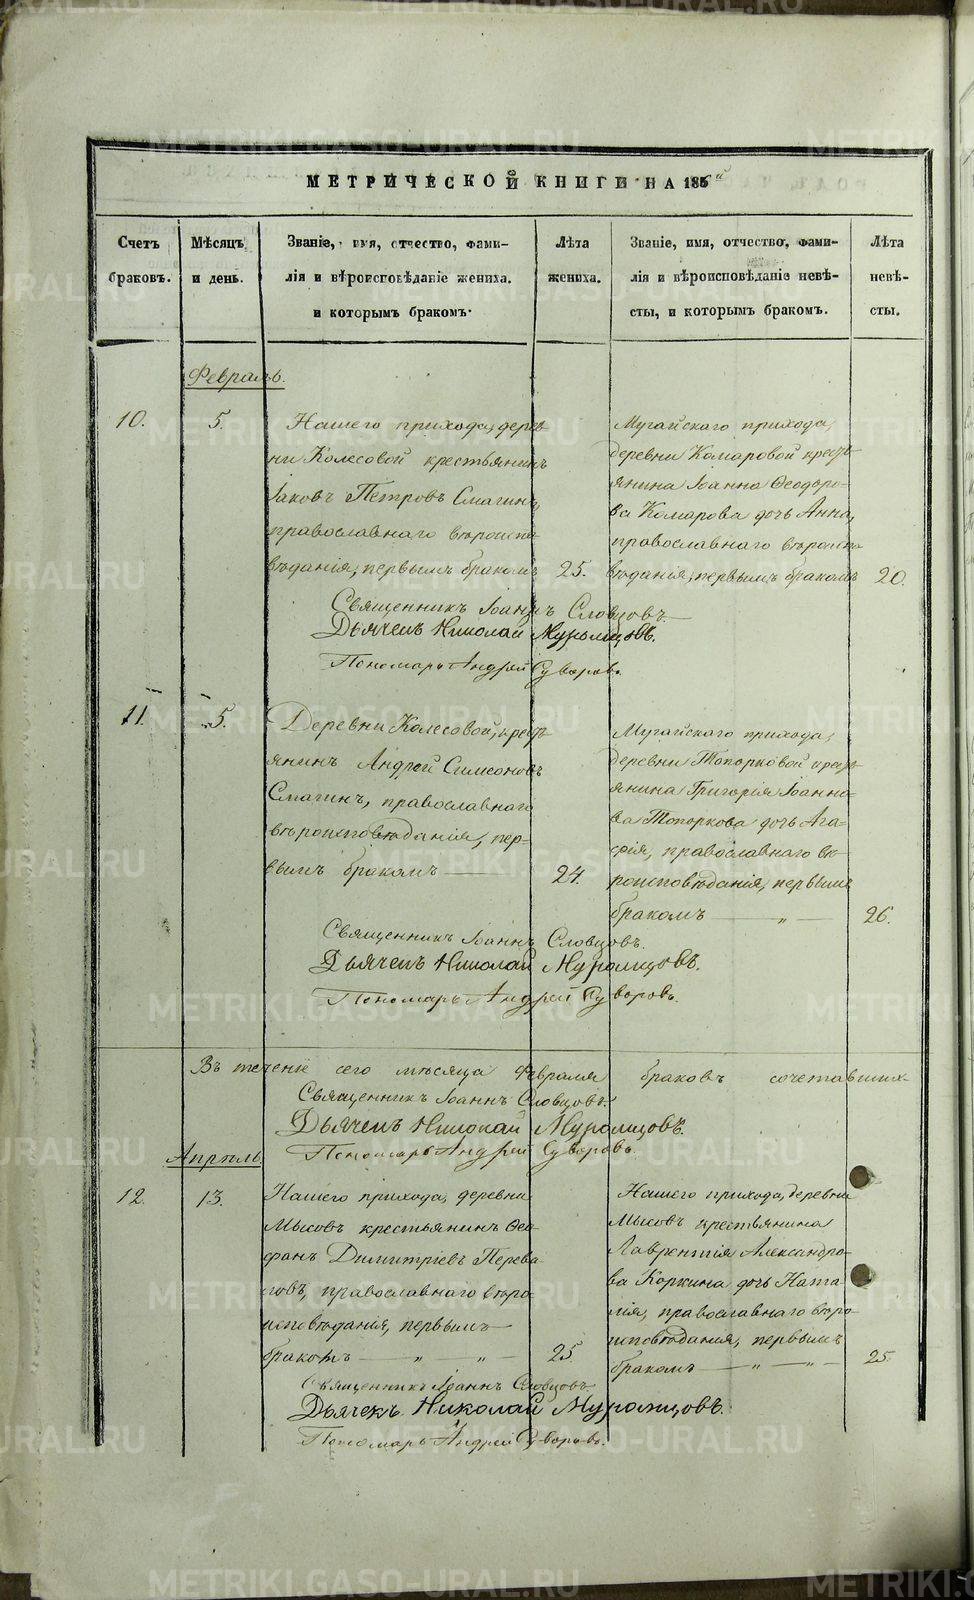 METRIKI.GASO-URAL.RU
МЕТРИЧЕСКОЙ КНИГИ НА 185 й
Счетъ браковъ.
Мѣсяцъ и день.
Званіе, имя, отчество, фами-
лія и вѣроисповѣданіе жениха.
и которымъ бракомъ.
Лѣта
жениха.
Званіе, имя, отчество, фами-
лія и вѣроисповѣданіе невѣ-
сты, и которымъ бракомъ.
Лѣта
невѣ-
сты.
Февраль.
10.
5.
Нашего прихода, дерев
ни Колесовой крестьянинъ
Іаковъ Петровъ Смагинъ,
православнаго вѣроиспо
вѣданія, первымъ бракомъ
25.
Мугайскаго прихода,
деревни Комаровой кресть
янина Іоанна Ѳеодоро-
ва Комарова дочь Анна,
православнаго вѣроиспо
вѣданія, первымъ бракомъ
20.
Священникъ Іоаннъ Словцовъ.
Дьячекъ Николай Муромцовъ.
Пономарь Андрей Суворовъ.
11.
5.
Деревни Колесовой, крест
янинъ Андрей Симеоновъ
Смагинъ, православнаго
вѣроисповѣданія, пер-
вымъ бракомъ
24.
Мугайскаго прихода,
деревни Топорковой крест
янина Григорія Іоанно-
ва Топоркова дочь Ага-
фія, православнаго вѣ-
роисповѣданія, первымъ
бракомъ — „ —
26.
Священникъ Іоаннъ Словцовъ.
Дьячекъ Николай Муромцовъ.
Пономарь Андрей Суворовъ.
Въ теченіе сего мѣсяца Февраля браковъ сочетавших
Священникъ Іоаннъ Словцовъ.
Дьячекъ Николай Муромцовъ.
Пономарь Андрей Суворовъ.
Апрѣль
12.
13.
Нашего прихода, деревни
Мысовъ крестьянинъ Ѳео-
фанъ Димитріевъ Перева-
ловъ, православнаго вѣро-
исповѣданія, первымъ
бракомъ — „ — „ —
25
Нашего прихода, деревни
Мысовъ крестьянина
Лаврентія Александро-
ва Коркина дочь Ната-
лія, православнаго вѣро-
исповѣданія, первымъ
бракомъ — „ — „ —
25.
Священникъ Іоаннъ Словцовъ
Дьячекъ Николай Муромцовъ.
Пономарь Андрей Суворовъ.